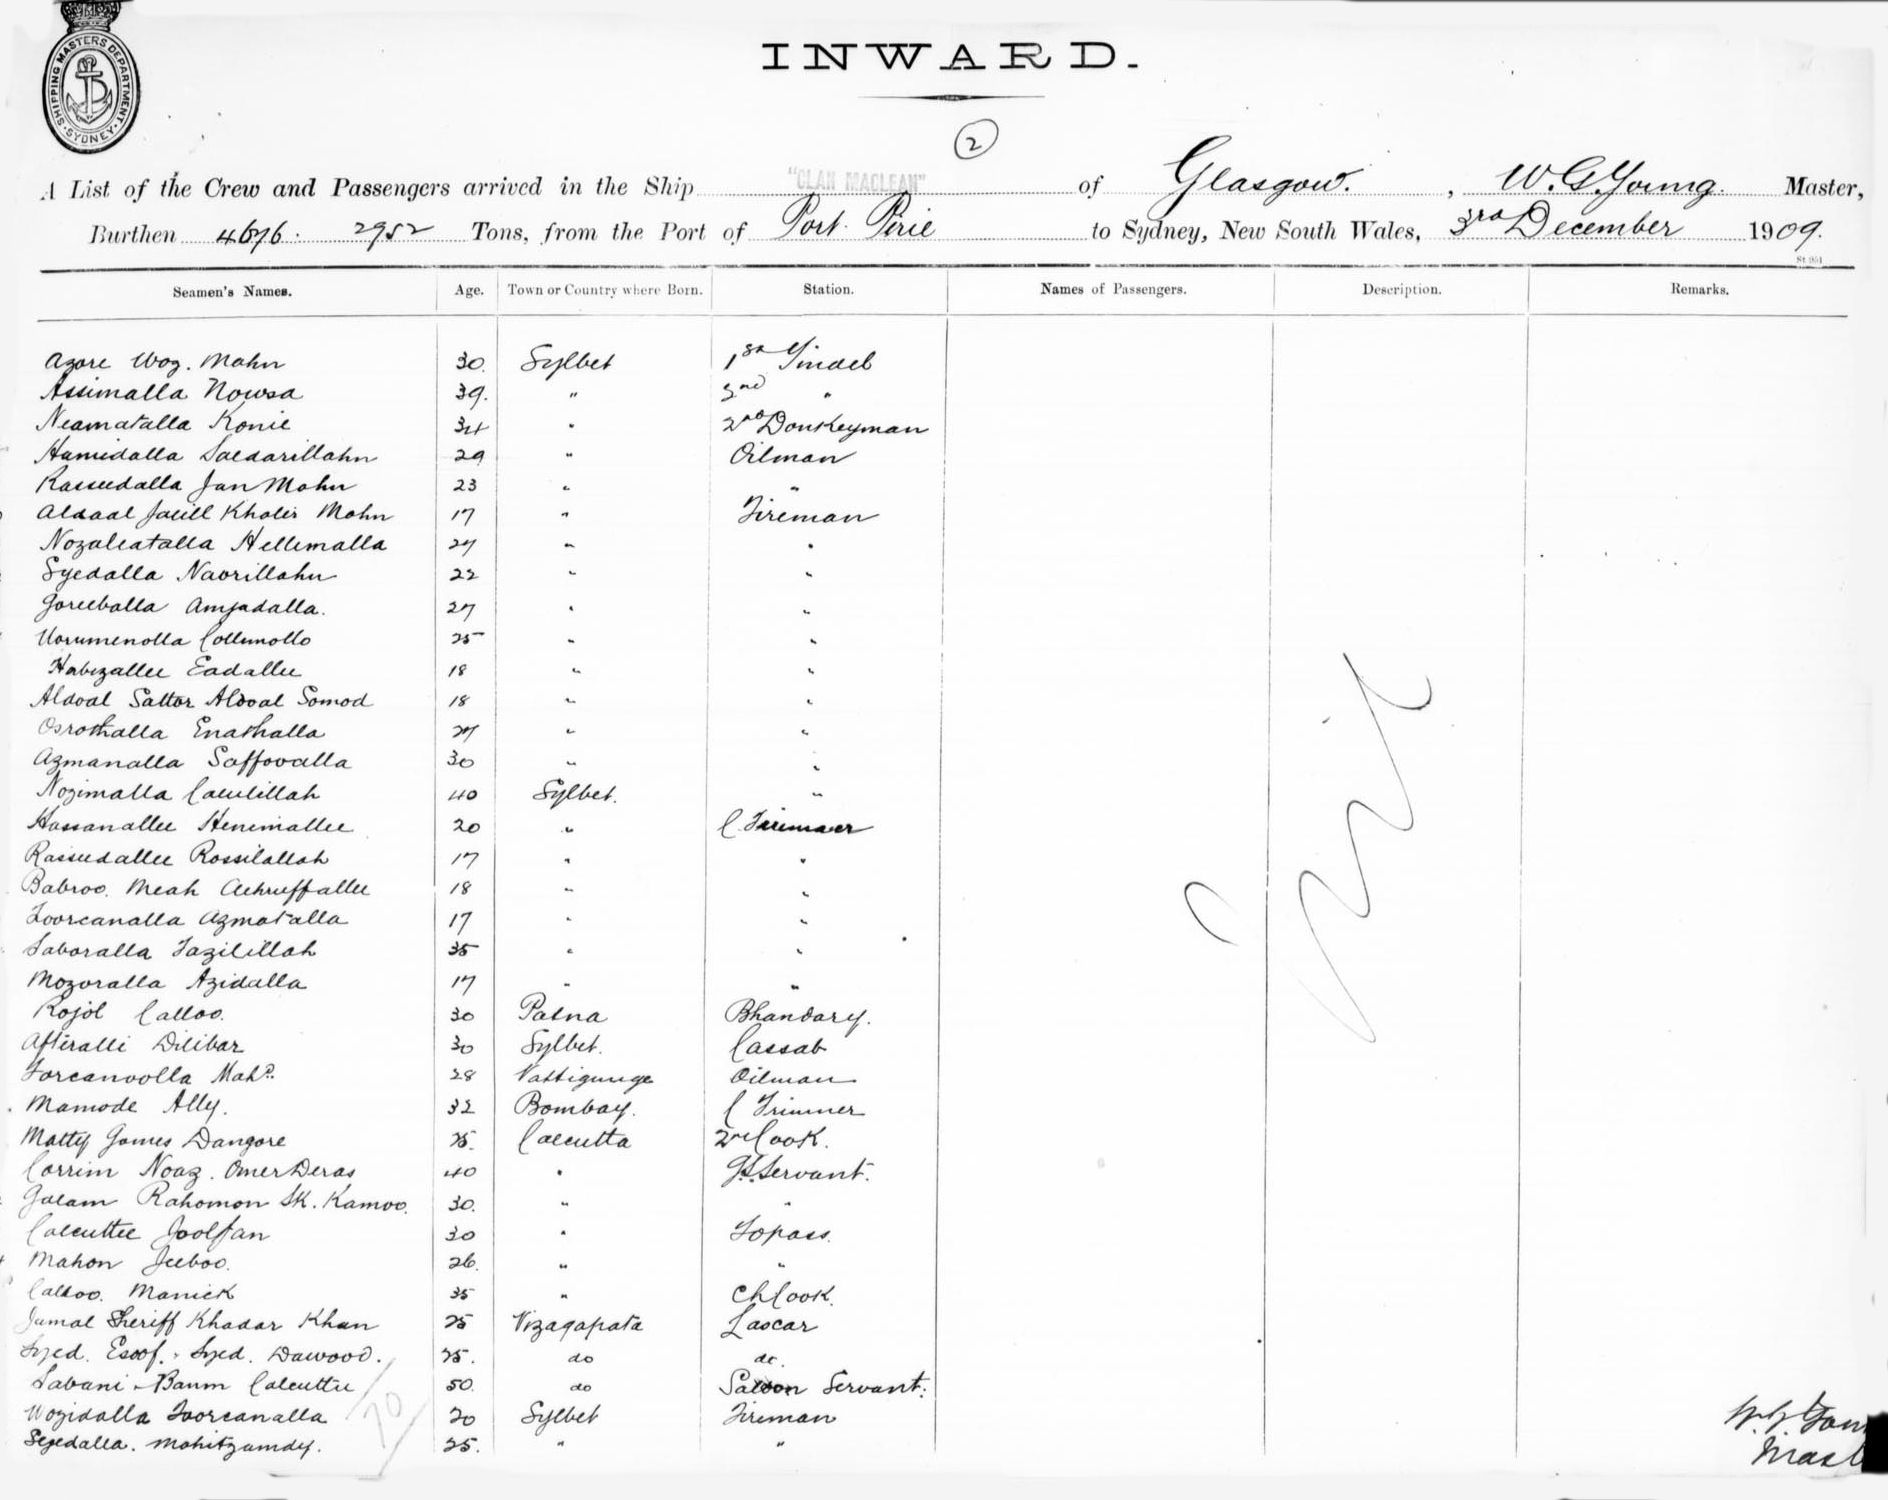 SHIPPING MASTERS DEPARTMENT · SYDNEY ·
INWARD.
2
A List of the Crew and Passengers arrived in the Ship "CLAN MACLEAN" of Glasgow. , W. G. Young. Master,
Burthen 4676. 2952 Tons, from the Port of Port Pirie to Sydney, New South Wales, 3rd December 1909.
St 951
Seamen's Names. Age. Town or Country where Born. Station. Names of Passengers. Description. Remarks.
Azore Woz. Mahn 30. Sylhet 1st Tindel
Assimalla Nowsa 39. " 2nd "
Neamatalla Konie 34 " 2nd Donkeyman
Hamidalla Saedarillahn 29 " Oilman
Rassedalla Jan Mahn 23 " "
Aldaal Jalill Khalir Mohn 17 " Fireman
Nozaleatalla Hellemalla 27 " "
Syedalla Naorillahn 22 " "
Goreeballa Amjadalla. 27 " "
Uorumenolla Collumollo 25 " "
Habizallee Eadallee 18 " "
Aldoal Sattor Aldoal Somod 18 " "
Osrothalla Enathalla 27 " "
Azmanalla Saffovalla 30 " "
Nozimalla Caeulillah 40 Sylhet. "
Hassanallee Henimallee 20 " C. Trimmer
Rassedallee Rossilallah 17 " "
Babroo. Meah Achruffallee 18 " "
Toorcanalla Azmatalla 17 " "
Saboralla Fazilillah 35 " "
Mozoralla Azidalla 17 " "
Rojol Calloo. 30 Patna Bhandary.
Afteralli Dilibar 30 Sylhet. Cassab
Torcanvolla Mahd. 28 Nattigunge Oilman
Mamode Ally. 32 Bombay. C Trimmer
Matty Gomes Dangore 25. Calcutta 2nd Cook.
Corrim Noaz. Omer Deras 40 " Gl. Servant.
Golam Rahomon Sk. Kamoo. 30. " "
Calcuttee Joolfan 30 " Topass.
Mahon Jeeboo. 26. " "
Calloo. Manick 35 " Ch Cook.
Jumal Sheriff Khadar Khan 25 Vizagapata Lascar
Syed. Esoof. Syed. Dawood. 25. do do.
Sabani Banm Calcuttee 50. do Saloon Servant.
Wozidalla Toorcanalla 20 Sylhet Fireman
Seyedalla. Mohitzumdy. 25. " "
Nil
70
W. G. Youn
Mast